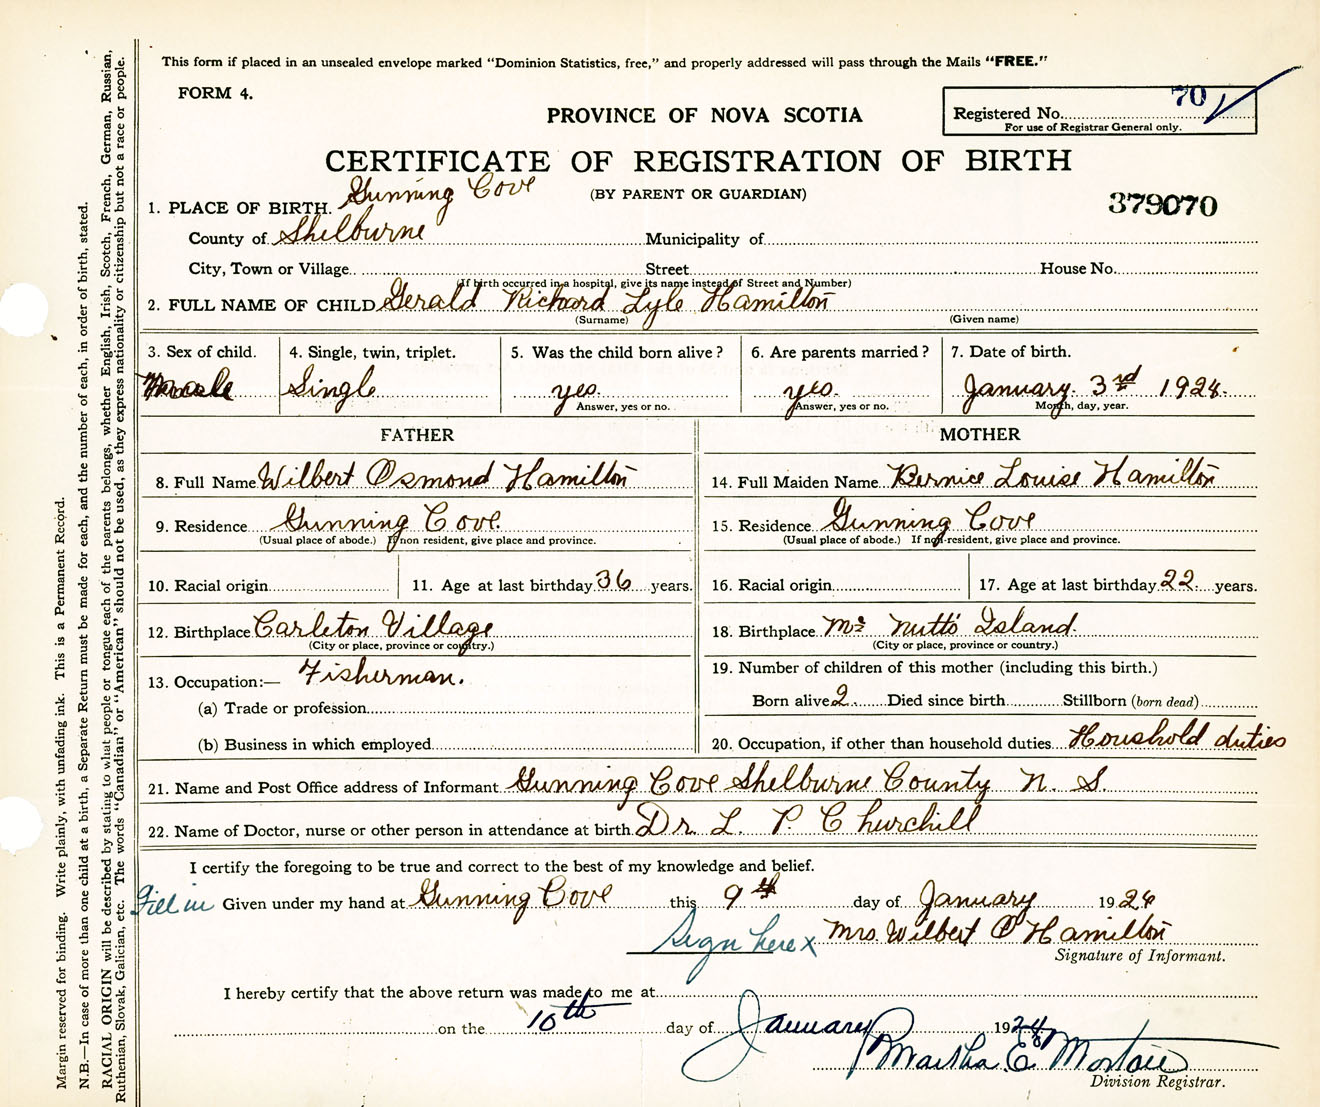 This form if placed in an unsealed envelope marked "Dominion Statistics, free," and properly addressed will pass through the Mails "FREE."
FORM 4.
PROVINCE OF NOVA SCOTIA
Registered No. 70
For use of Registrar General only.
CERTIFICATE OF REGISTRATION OF BIRTH
(BY PARENT OR GUARDIAN)
379070
1. PLACE OF BIRTH. Gunning Cove
County of Shelburne Municipality of
City, Town or Village Street House No.
(If birth occurred in a hospital, give its name instead of Street and Number)
2. FULL NAME OF CHILD Gerald Richard Lyle Hamilton
(Surname) (Given name)
3. Sex of child. 4. Single, twin, triplet. 5. Was the child born alive? 6. Are parents married? 7. Date of birth.
male Single yes. yes. January. 3rd 1928.
Answer, yes or no. Answer, yes or no. Month, day, year.
FATHER MOTHER
8. Full Name Wilbert Osmond Hamilton 14. Full Maiden Name Bernice Louise Hamilton
9. Residence Gunning Cove. 15. Residence Gunning Cove
(Usual place of abode.) If non resident, give place and province. (Usual place of abode.) If non-resident, give place and province.
10. Racial origin 11. Age at last birthday 36 years. 16. Racial origin 17. Age at last birthday 22 years.
12. Birthplace Carleton Village 18. Birthplace Mc Nutts Island.
(City or place, province or country.) (City or place, province or country.)
13. Occupation:— Fisherman. 19. Number of children of this mother (including this birth.)
(a) Trade or profession Born alive 2 Died since birth Stillborn (born dead)
(b) Business in which employed 20. Occupation, if other than household duties Houshold duties
21. Name and Post Office address of Informant Gunning Cove Shelburne County N. S.
22. Name of Doctor, nurse or other person in attendance at birth Dr. L. P. Churchill
I certify the foregoing to be true and correct to the best of my knowledge and belief.
Fill in Given under my hand at Gunning Cove this 9th day of January 19
Sign here x Mrs. Wilbert O Hamilton
Signature of Informant.
I hereby certify that the above return was made to me at
on the 10th day of January 19
Martha E.
Division Registrar.
Margin reserved for binding. Write plainly, with unfading ink. This is a Permanent Record.
N.B.—In case of more than one child at a birth, a Separate Return must be made for each, and the number of each, in order of birth, stated.
RACIAL ORIGIN will be described by stating to what people or tongue each of the parents belongs, whether English, Irish, Scotch, French, German, Russian,
Ruthenian, Slovak, Galician, etc. The words "Canadian" or "American" should not be used, as they express nationality or citizenship but not a race or people.